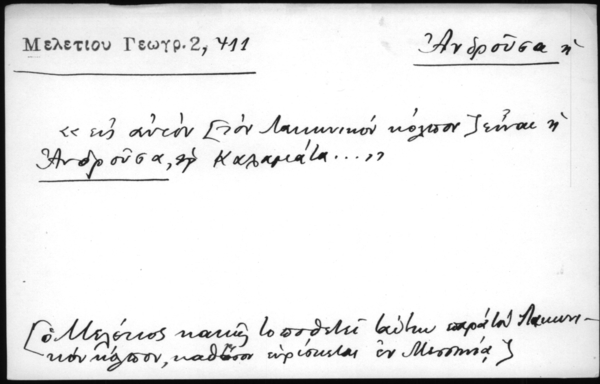 Μελετιου Γεωγρ. 2, 411
Ἀνδροῦσα ἡ
« εἰς αὐτὸν [τὸν Λακωνικόν κόλπον] εἶναι ἡ
Ἀνδροῦσα, ἡ Καλαμάτα...»
[ὁ Μελέτιος κακῶς τοποθετεῖ ταύτην παρὰ τὸν Λακωνι-
κόν κόλπον, καθόσον εὑρίσκεται ἐν Μεσσηνίᾳ]